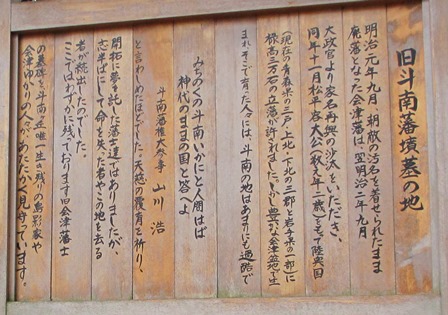 旧斗南藩墳墓の地
明治元年九月、朝敵の汚名を着せられたまま
廃落となった会津藩は、翌明治二年九月
大政官より家名再興の沙太をいただき、
同年十一月松平容大公(数え年一歳)をもって陸奥国
(現在の青森県の三戸・上北・下北の三郡と岩手県の一部)に
禄高三万石の立藩が許されました。しかし豊かな会津盆地で生
まれそこで育った人々には、斗南の地はあまりにも過酷で
みちのくの斗南いかにと人問はば
神代のままの国と答へよ
斗南藩権大参事 山川 浩
と言わしめたほどでした。天穂の覆育を祈り、
開拓に夢を託した藩士達ではありましたが、
志半ばにして命を失った者やこの地を去る
者が続出したのでした。
ここではわずかに残っております旧会津藩士
の墓碑を、斗南 唯一生き残りの島影家や
会津ゆかりの人々が、あたたかく見守っています。